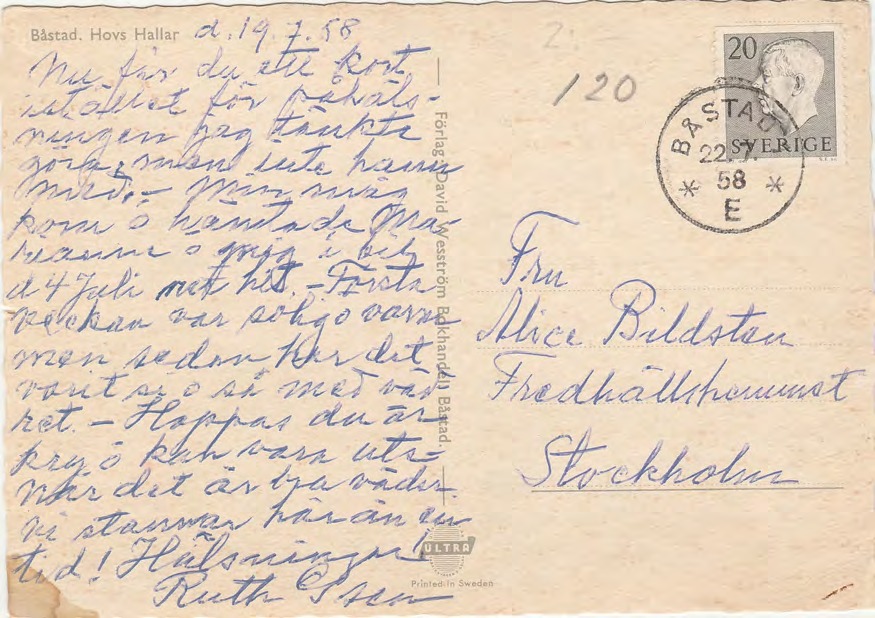 Båstad. Hovs Hallar d. 19.7.58
Nu får du ett kort
istället för påhäls-
ningen jag tänkte
göra, men inte hann
med. - Min måg
kom o hämtade Ma-
rianne o mig i bil
d 4 Juli hit. - Första
veckan var solig o varm
men sedan har det
varit si o så med väd
ret. - Hoppas du är
kry o kan vara ute
när det är bra väder.
Vi stannar här än en
tid! Hälsningar!
Ruth
Förlag: David Wesström Bokhandel, Båstad.
ULTRA
Printed in Sweden
2.
120
20
SVERIGE
BÅSTAD
22.7.
* 58 *
E
Fru
Alice Bildsten
Fredhällshemmet
Stockholm